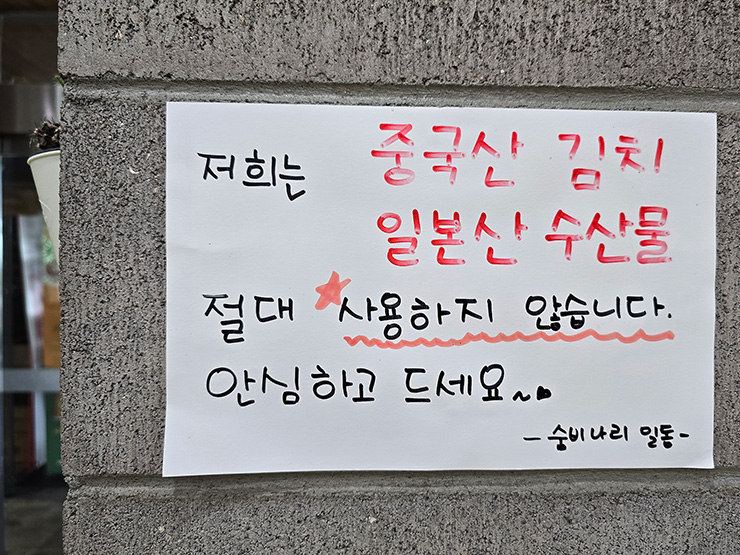 저희는 중국산 김치
일본산 수산물
절대 ★사용하지 않습니다.
안심하고 드세요~♥
- 숨비나리 일동 -